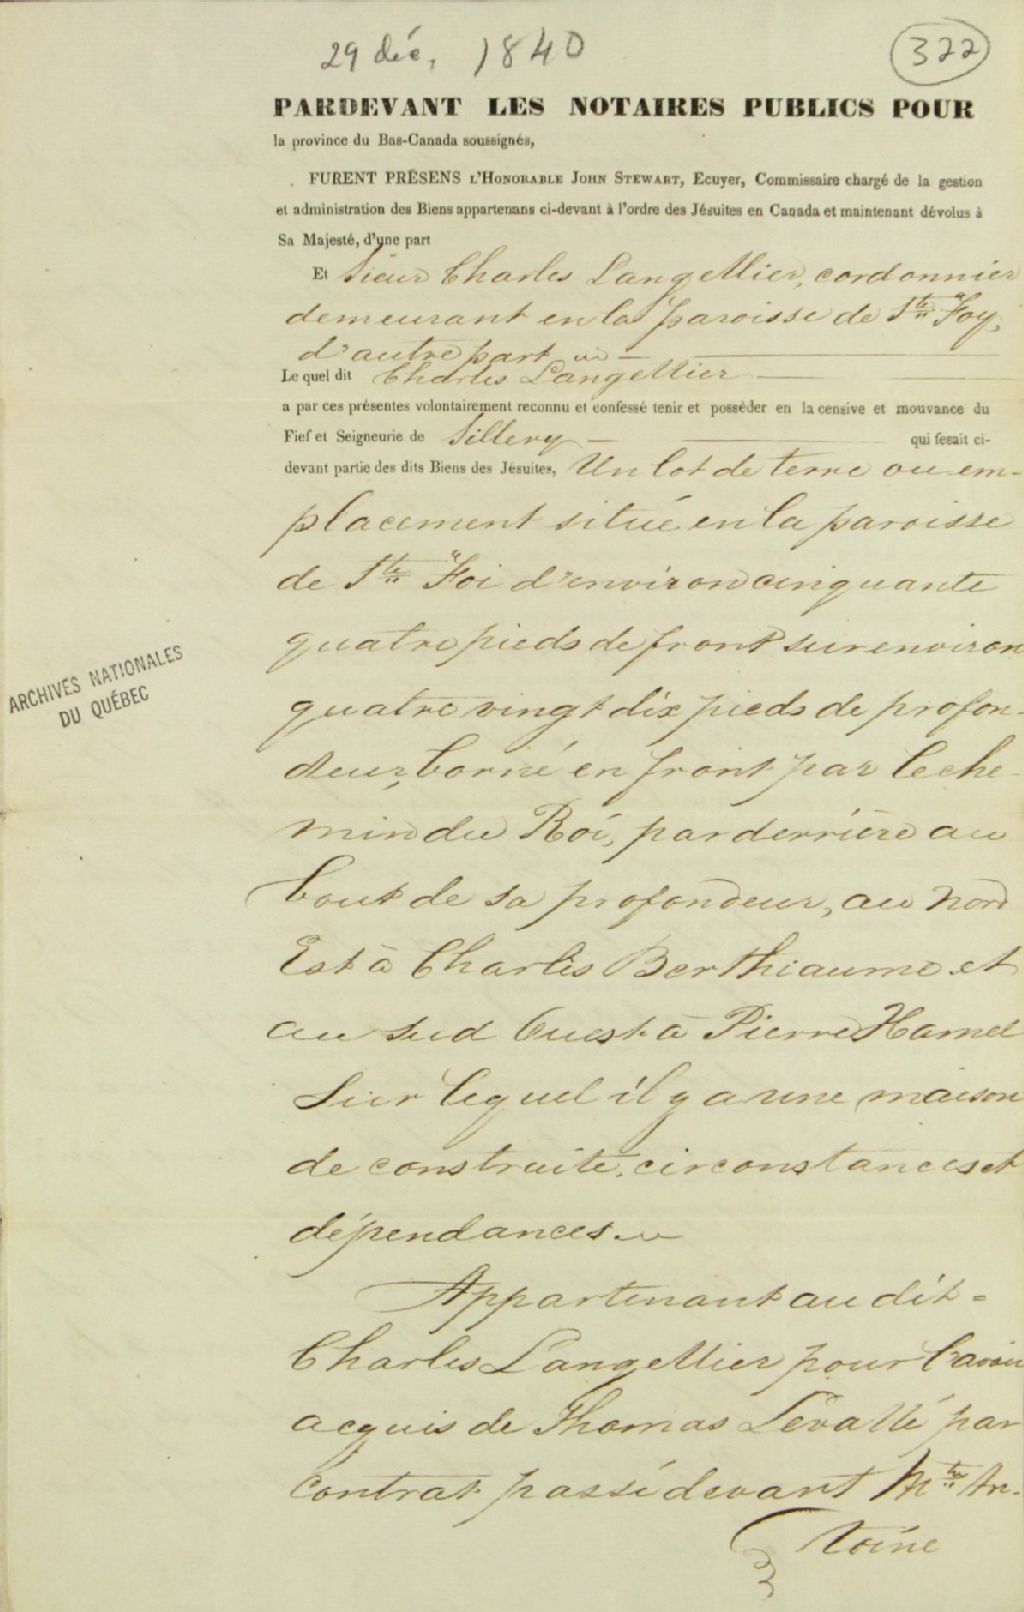 29 déc, 1840
322
PARDEVANT LES NOTAIRES PUBLICS POUR
la province du Bas-Canada soussignés,
FURENT PRÉSENS L'HONORABLE JOHN STEWART, Ecuyer, Commissaire chargé de la gestion
et administration des Biens appartenans ci-devant à l'ordre des Jésuites en Canada et maintenant dévolus à
Sa Majesté, d'une part
Et Sieur Charles Langellier, cordonnier
demeurant en la paroisse de Ste Foy,
d'autre part
Le quel dit Charles Langellier
a par ces présentes volontairement reconnu et confessé tenir et posséder en la censive et mouvance du
Fief et Seigneurie de Sillery qui fesait ci-
devant partie des dits Biens des Jésuites, Un lot de terre ou em-
placement situé en la paroisse
de Ste Foi d'environ cinquante
quatre pieds de front sur environ
quatre vingt dix pieds de profon-
deur, borné en front par le che-
min du Roi, par derrière au
bout de sa profondeur, au nord
Est à Charles Berthiaume et
au sud Ouest à Pierre Hamel
Sur lequel il y a une maison
de construite, circonstances et
dépendances
Appartenant au dit =
Charles Langellier pour l'avoir
acquis de Thomas Levallé par
contrat passé devant Mtre An-
toine
ARCHIVES NATIONALES
DU QUÉBEC